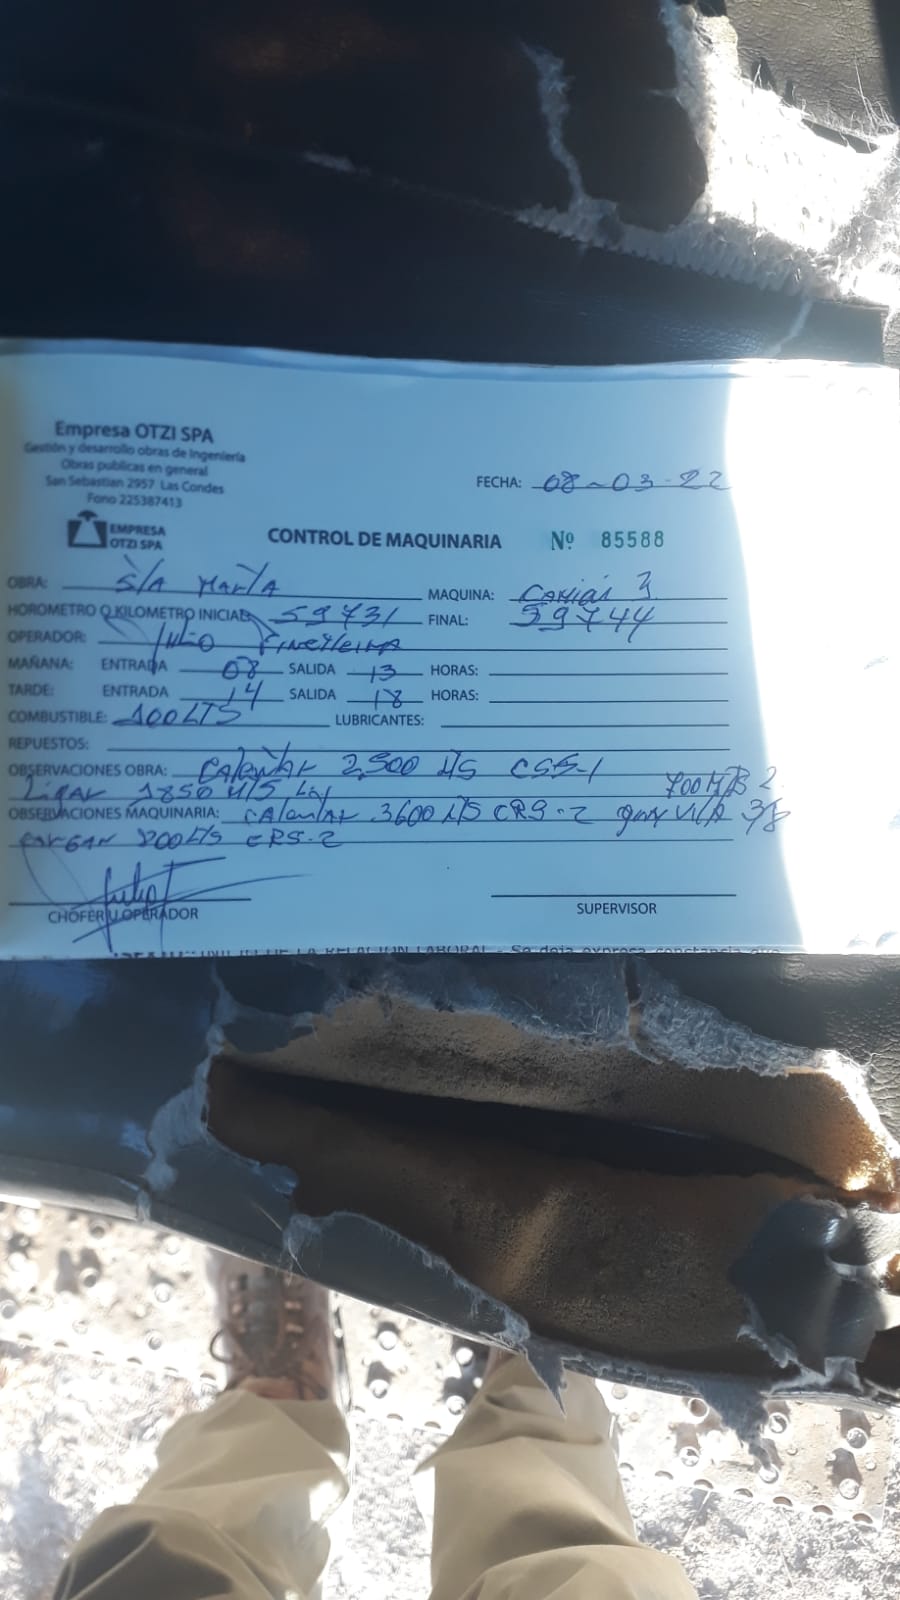 Empresa OTZI SPA
Gestión y desarrollo obras de Ingeniería
Obras publicas en general
San Sebastian 2957 Las Condes
Fono 225387413
EMPRESA
OTZI SPA
FECHA: 08-03-22
CONTROL DE MAQUINARIA Nº 85588
OBRA: S/A MARIA MAQUINA: Camión 3
HOROMETRO O KILOMETRO INICIAL 59731 FINAL: 59744
OPERADOR: Julio
MAÑANA: ENTRADA 08 SALIDA 13 HORAS:
TARDE: ENTRADA 14 SALIDA 18 HORAS:
COMBUSTIBLE: 100 LTS LUBRICANTES:
REPUESTOS:
OBSERVACIONES OBRA: Calentar 2,500 Lts CSS-1
Ligar 1850 700 Mts 2
OBSERVACIONES MAQUINARIA: Calentar 3600 Lts CRS-2 gravilla 3/8
cargan 800 Lts CRS-2
CHOFER U OPERADOR
SUPERVISOR
DE LA RELACION LABORAL - Se deja expresa constancia que